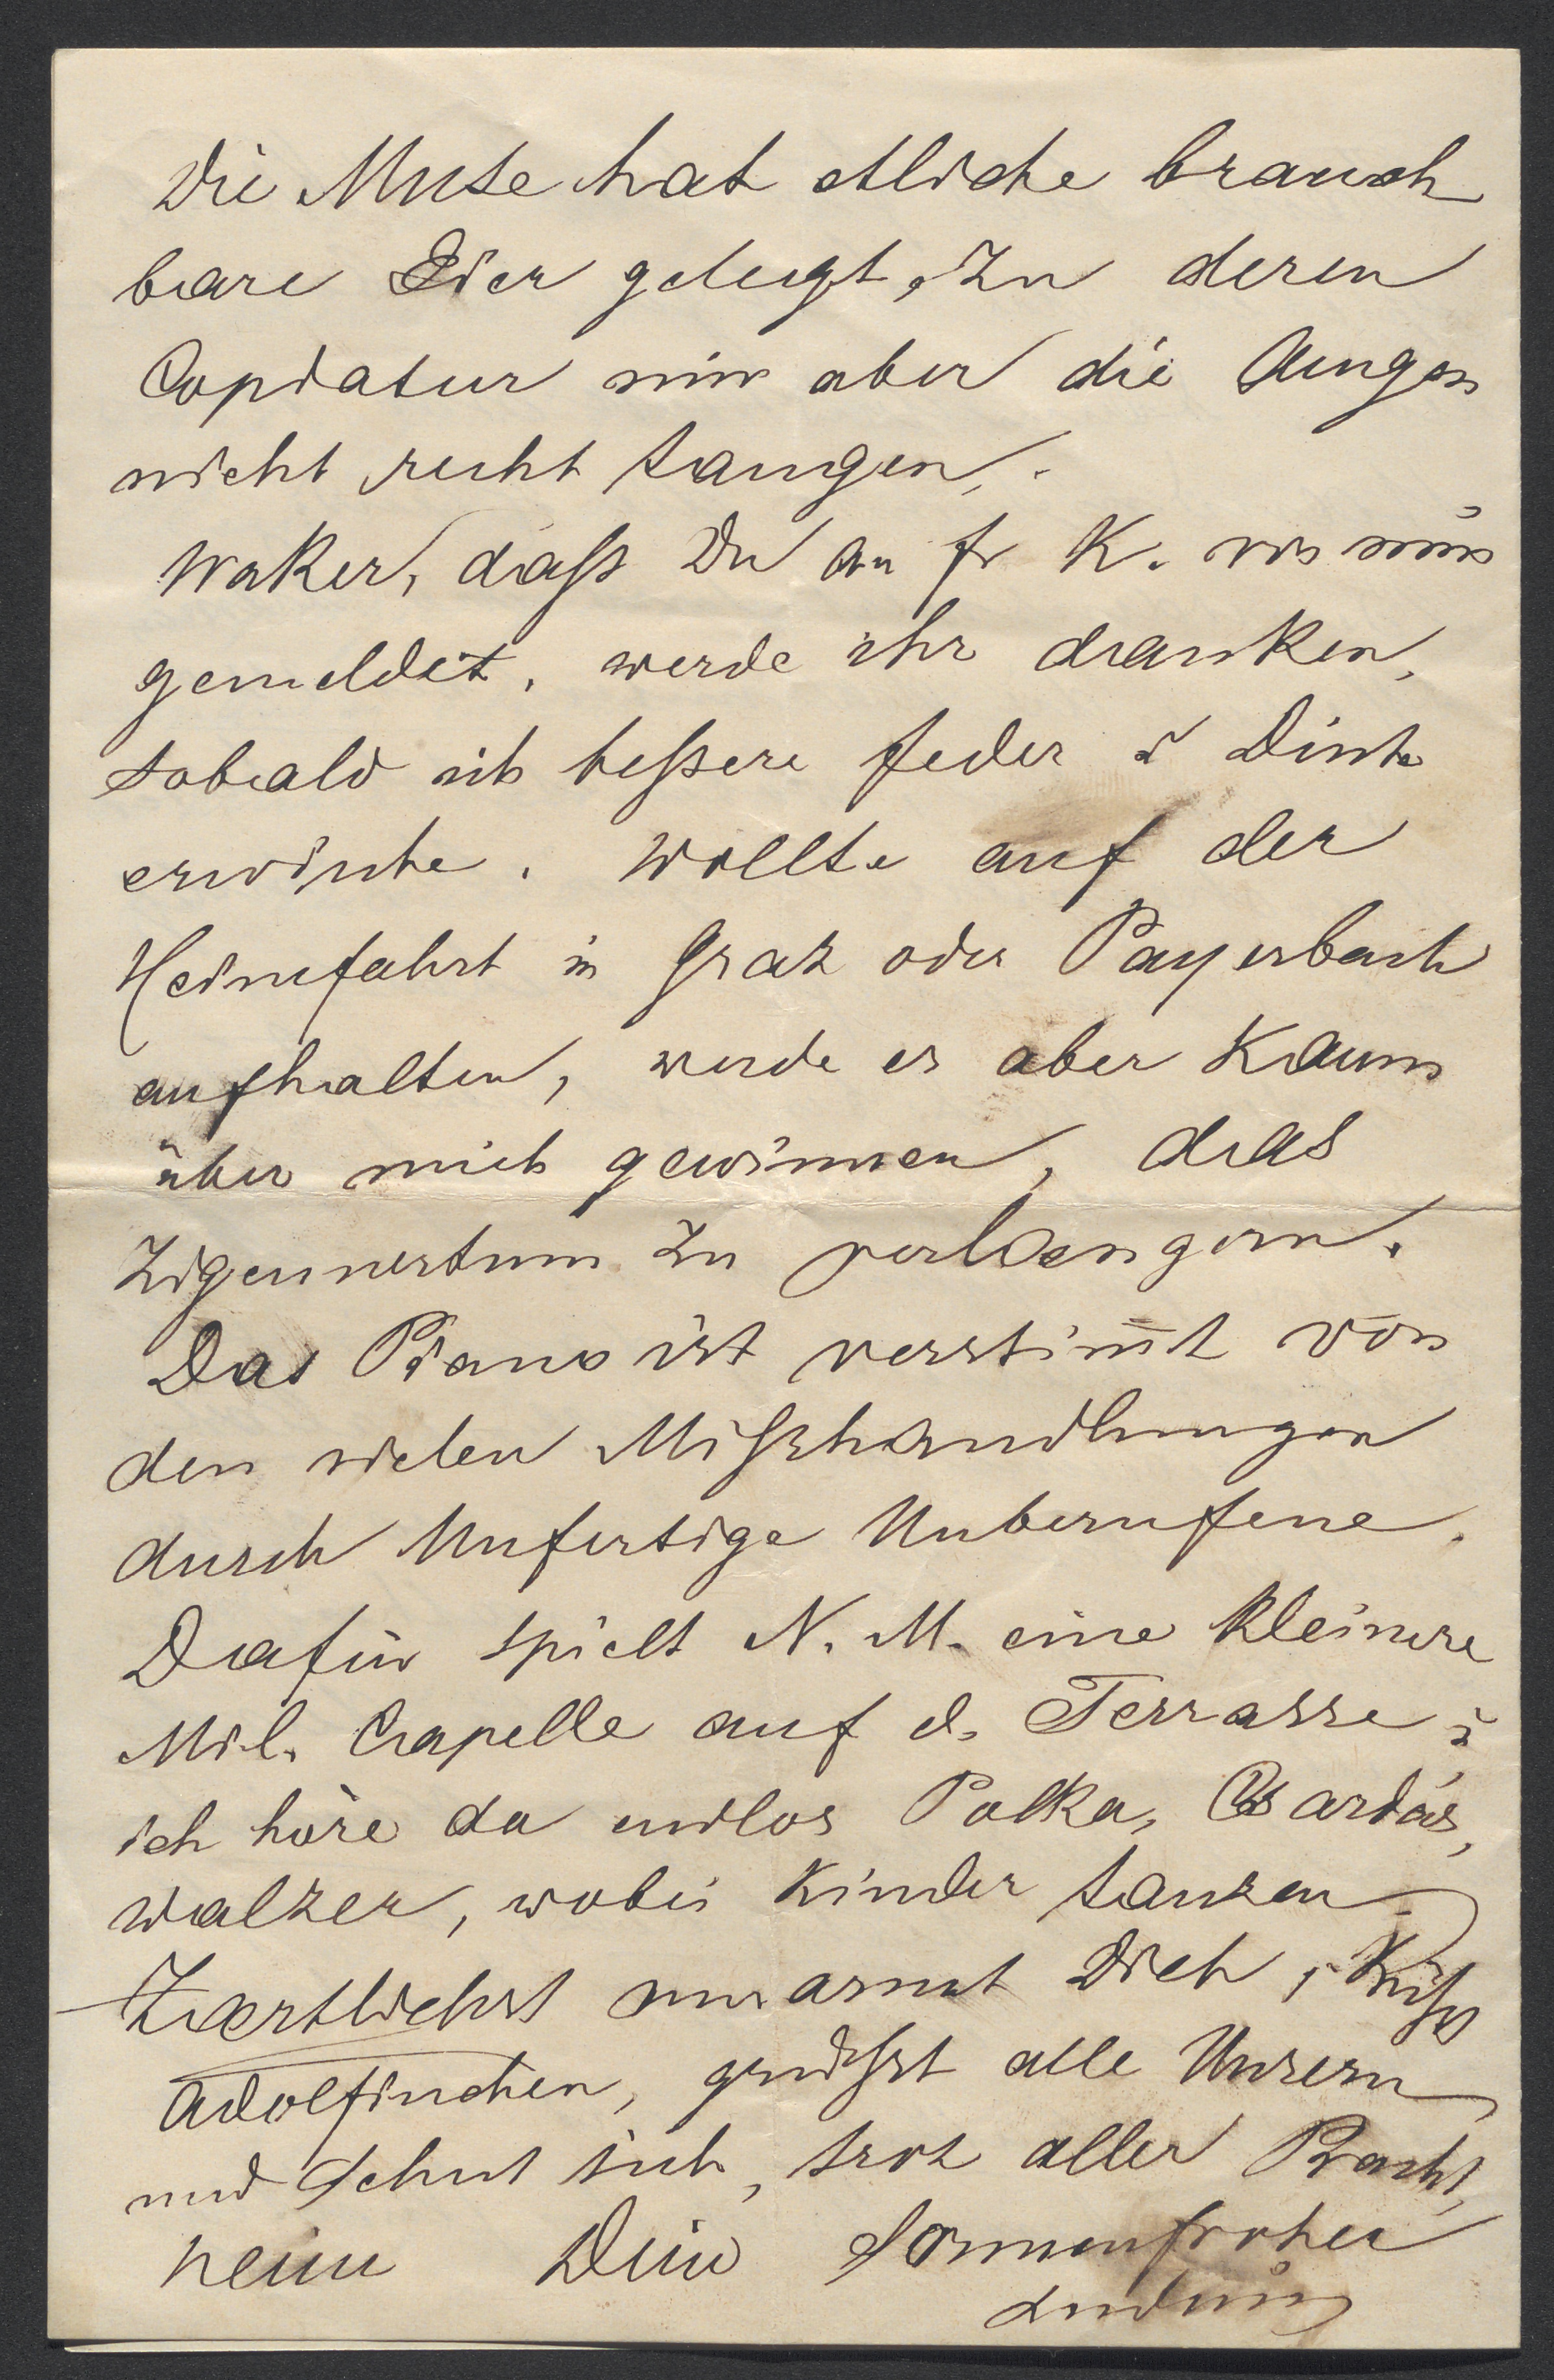 Die Muse hat etliche brauch
bare Eier gelegt, zu deren
Copiatur mir aber die Augen
nicht recht taugen.
Waker, dass Du an Fr K. von mir
gemeldet, werde ihr danken,
sobald ich bessere Feder u Dinte
erwische. Wollte auf der
Heimfahrt in Graz oder Payerbach
aufhalten, werde es aber kaum
über mich gewinnen, das
Zigeunertum zu verlängern.
Das Piano ist verstim̅t von
den vielen Misshandlungen
durch Unfertige Unberufene.
Dafür spielt N. M. eine kleinere
Mil. Capelle auf d. Terrasse u
ich höre da endlos Polka, Csardás,
Walzer, wobei Kinder tanzen.
Zaertlichst umarmt Dich,
Adolfinchen, grüsst alle Unsern
und sehnt sich, troz aller Pracht,
heim Dein Sonnenfroher